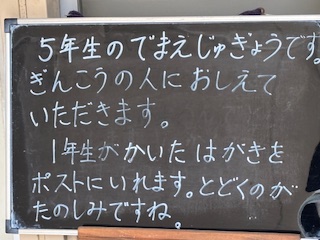 5年生のでまえじゅぎょうです。
ぎんこうの人におしえて
いただきます。
1年生がかいたはがきを
ポストにいれます。とどくのが
たのしみですね。